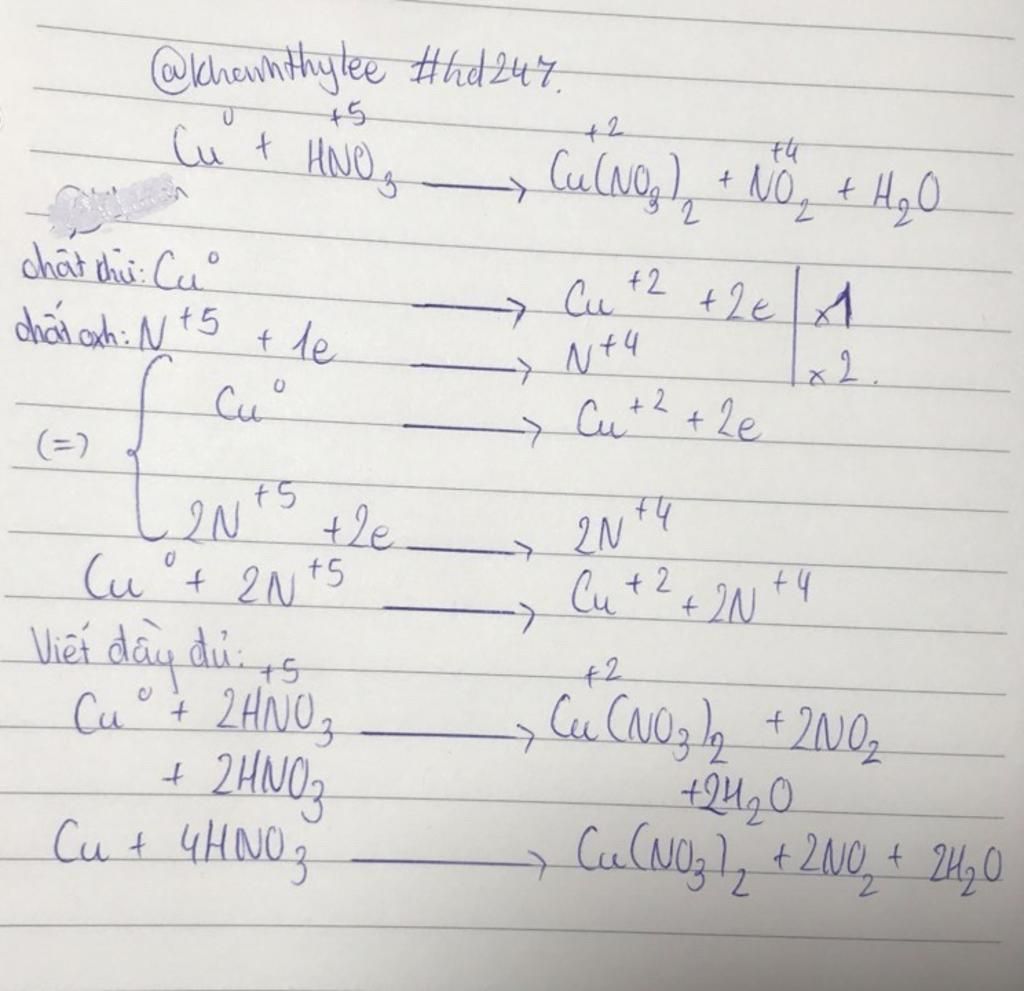 @khawnthylee #hd247.
Cu⁰ + HN⁺⁵O₃ → Cu⁺²(NO₃)₂ + N⁺⁴O₂ + H₂O
chất khử: Cu⁰ → Cu⁺² + 2e | x1
chất oxh: N⁺⁵ + 1e → N⁺⁴ | x2.
(=) { Cu⁰ → Cu⁺² + 2e
2N⁺⁵ + 2e → 2N⁺⁴
Cu⁰ + 2N⁺⁵ → Cu⁺² + 2N⁺⁴
Viết đầy đủ:
Cu⁰ + 2HN⁺⁵O₃ → Cu⁺²(NO₃)₂ + 2NO₂
+ 2HNO₃ +2H₂O
Cu + 4HNO₃ → Cu(NO₃)₂ + 2NO₂ + 2H₂O